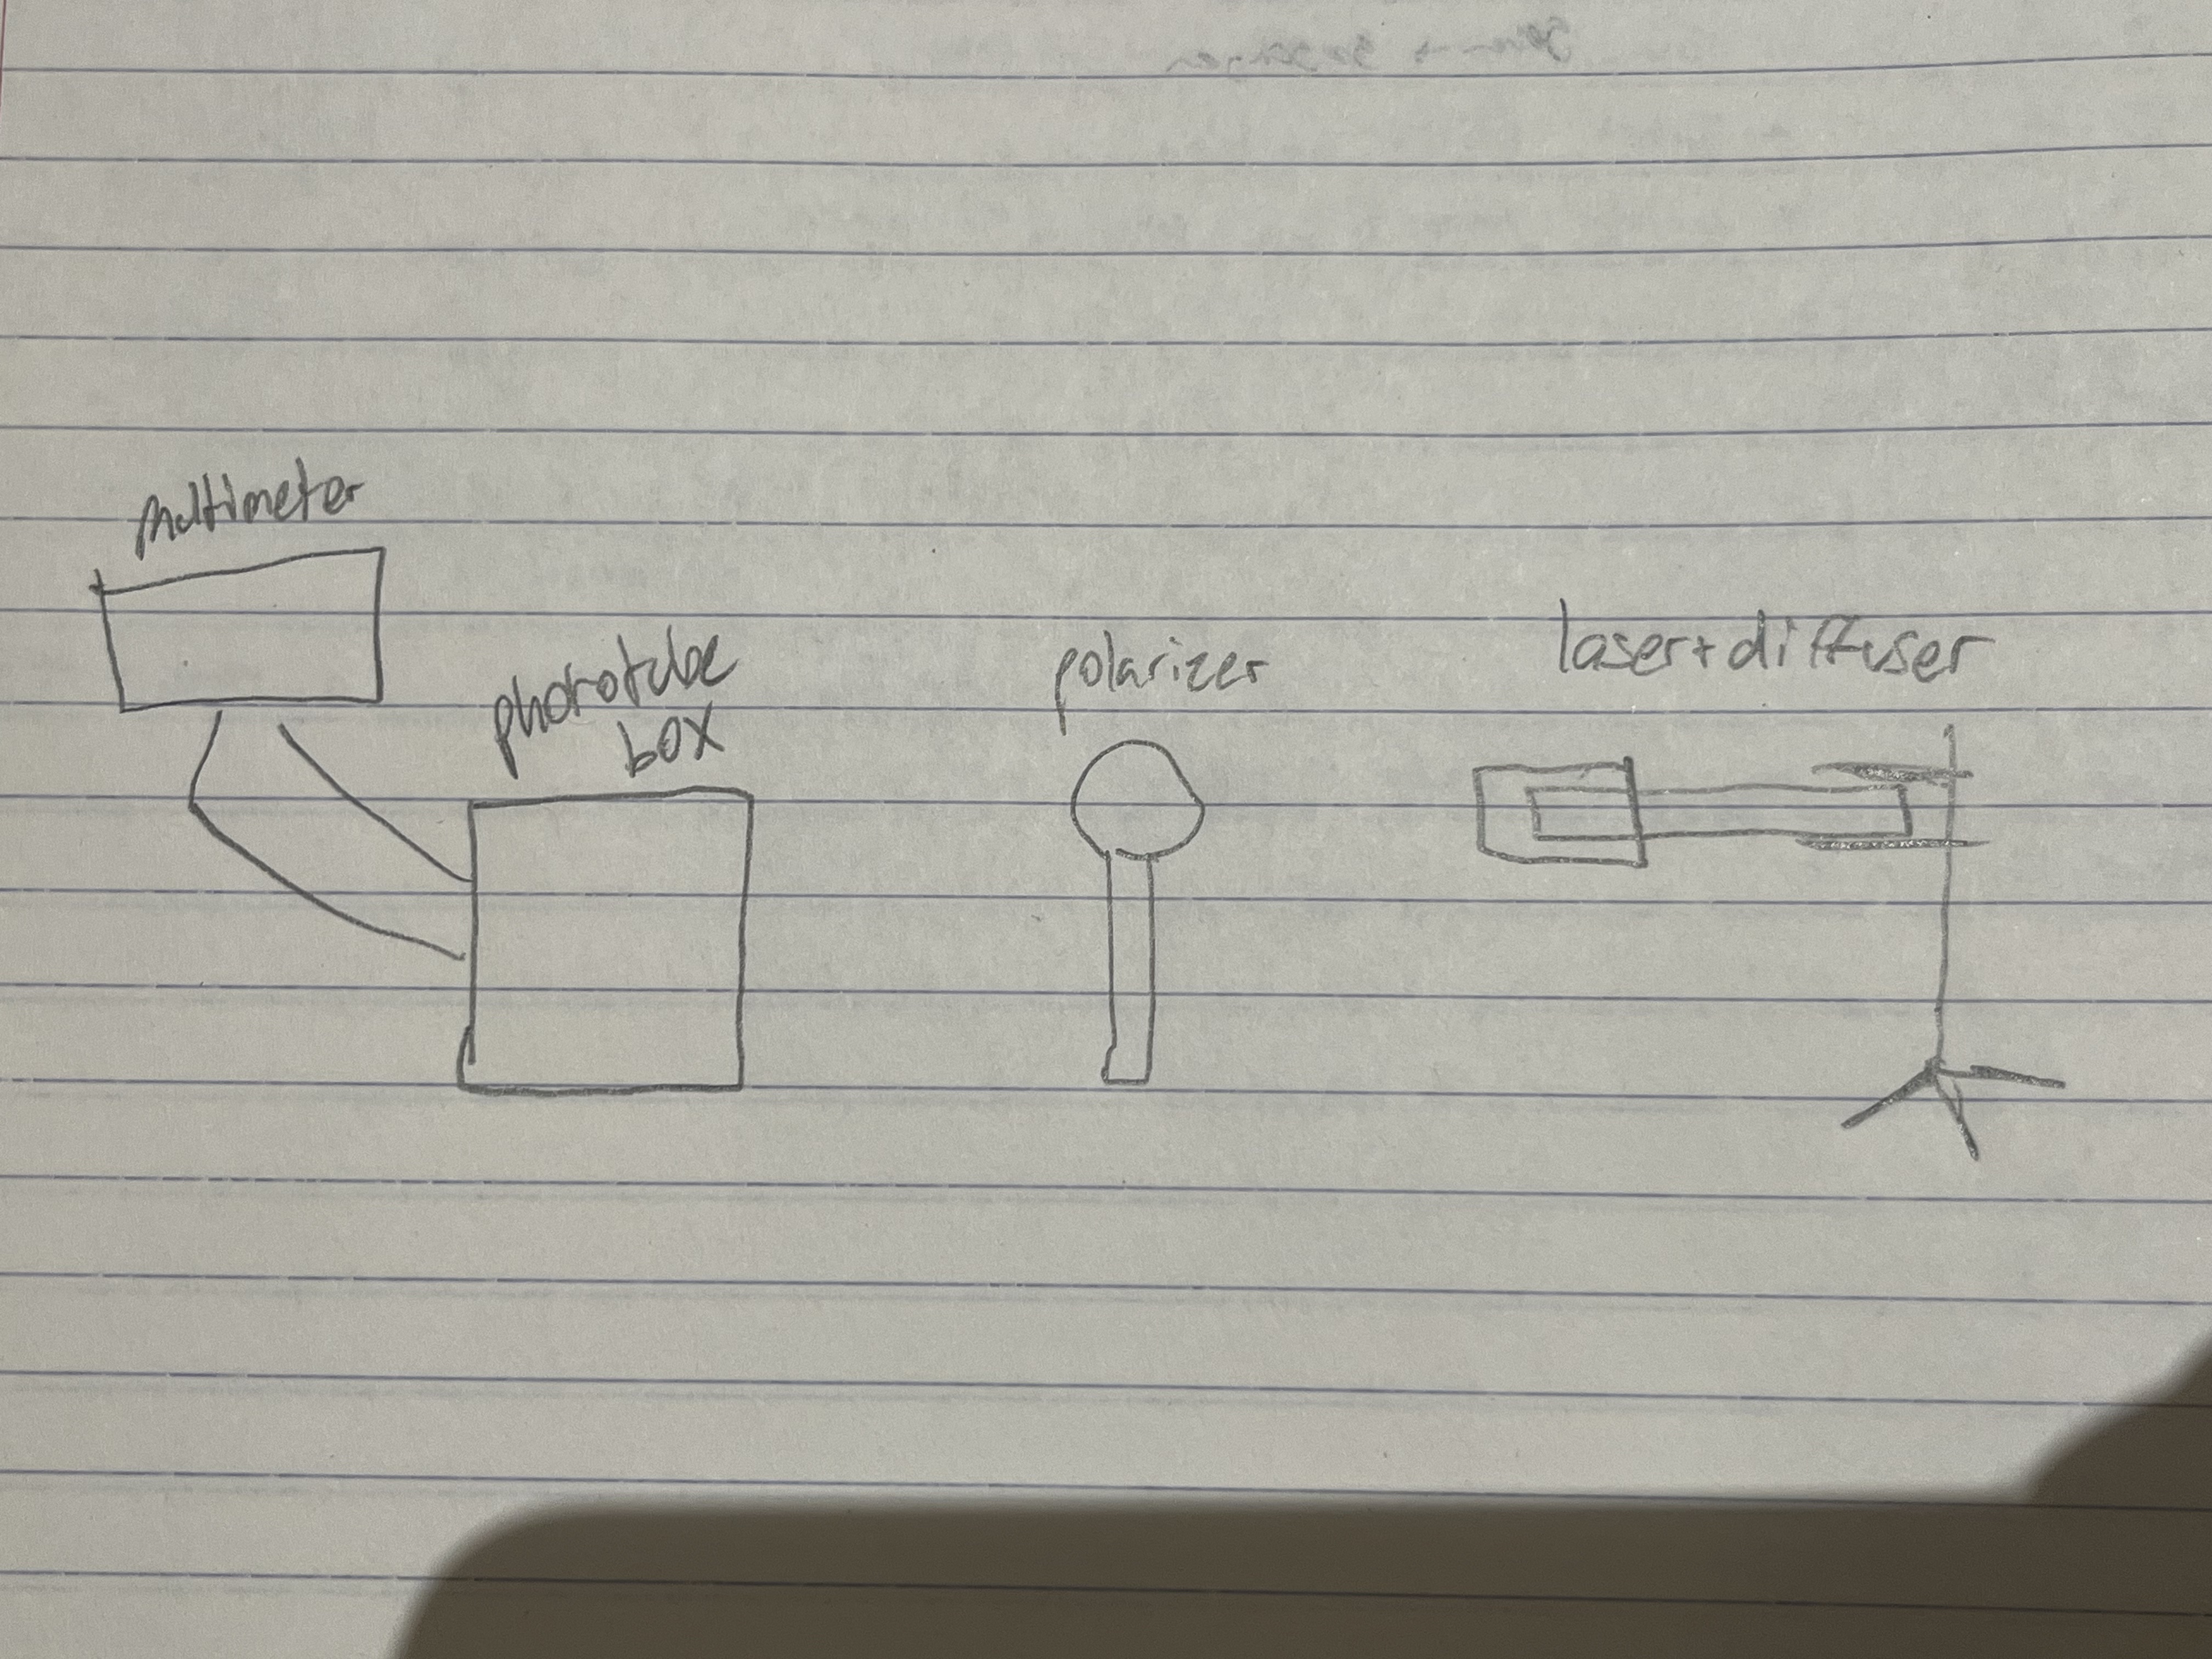 multimeter
phototube
box
polarizer
laser+diffuser